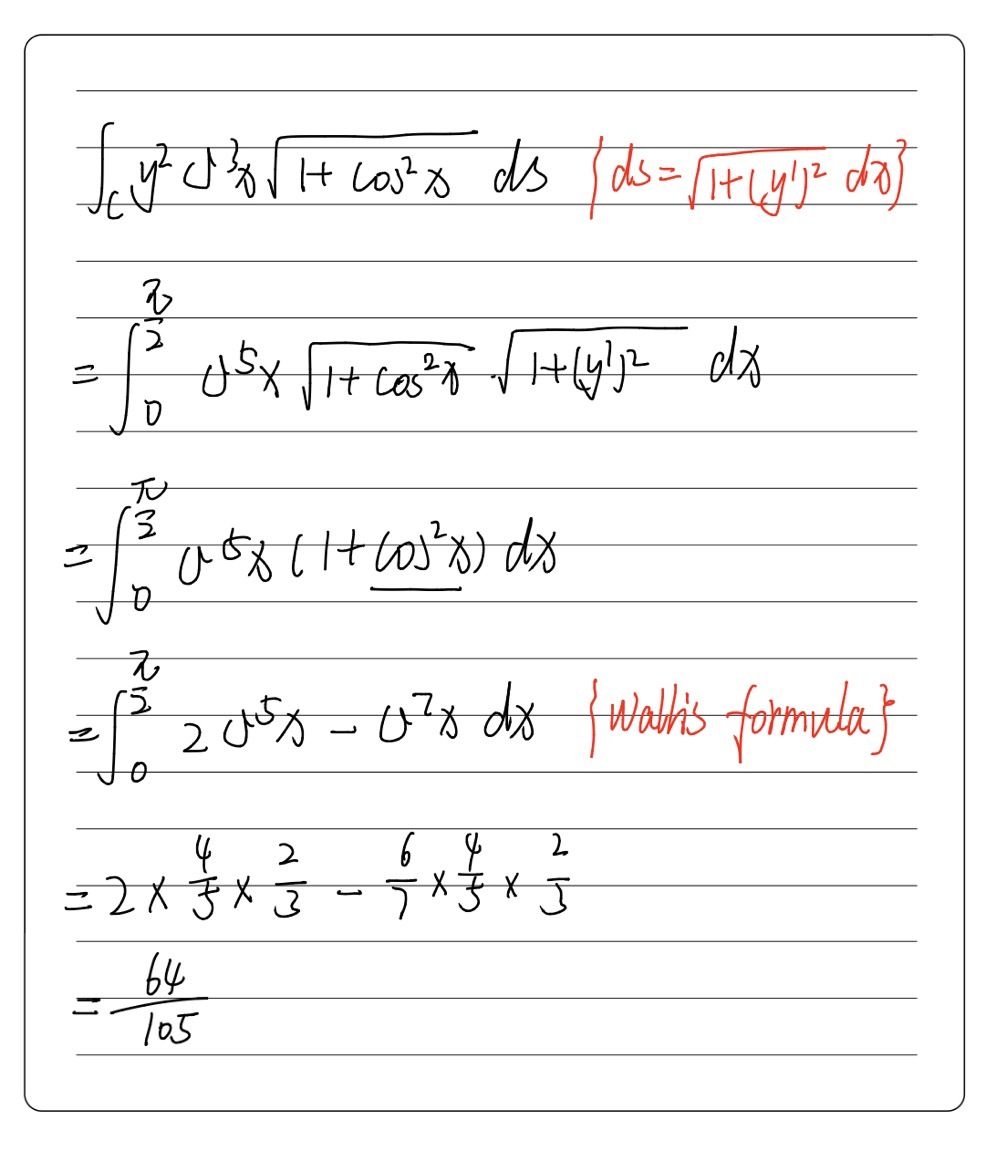 ∫_C y² σ³x √(1+cos²x) ds {ds=√(1+(y')²) dx}
= ∫_0^{π/2} σ⁵x √(1+cos²x) · √(1+(y')²) dx
= ∫_0^{π/2} σ⁵x (1+cos²x) dx
= ∫_0^{π/2} 2σ⁵x − σ⁷x dx {Wallis formula}
= 2 × 4/5 × 2/3 − 6/7 × 4/5 × 2/3
= 64/105